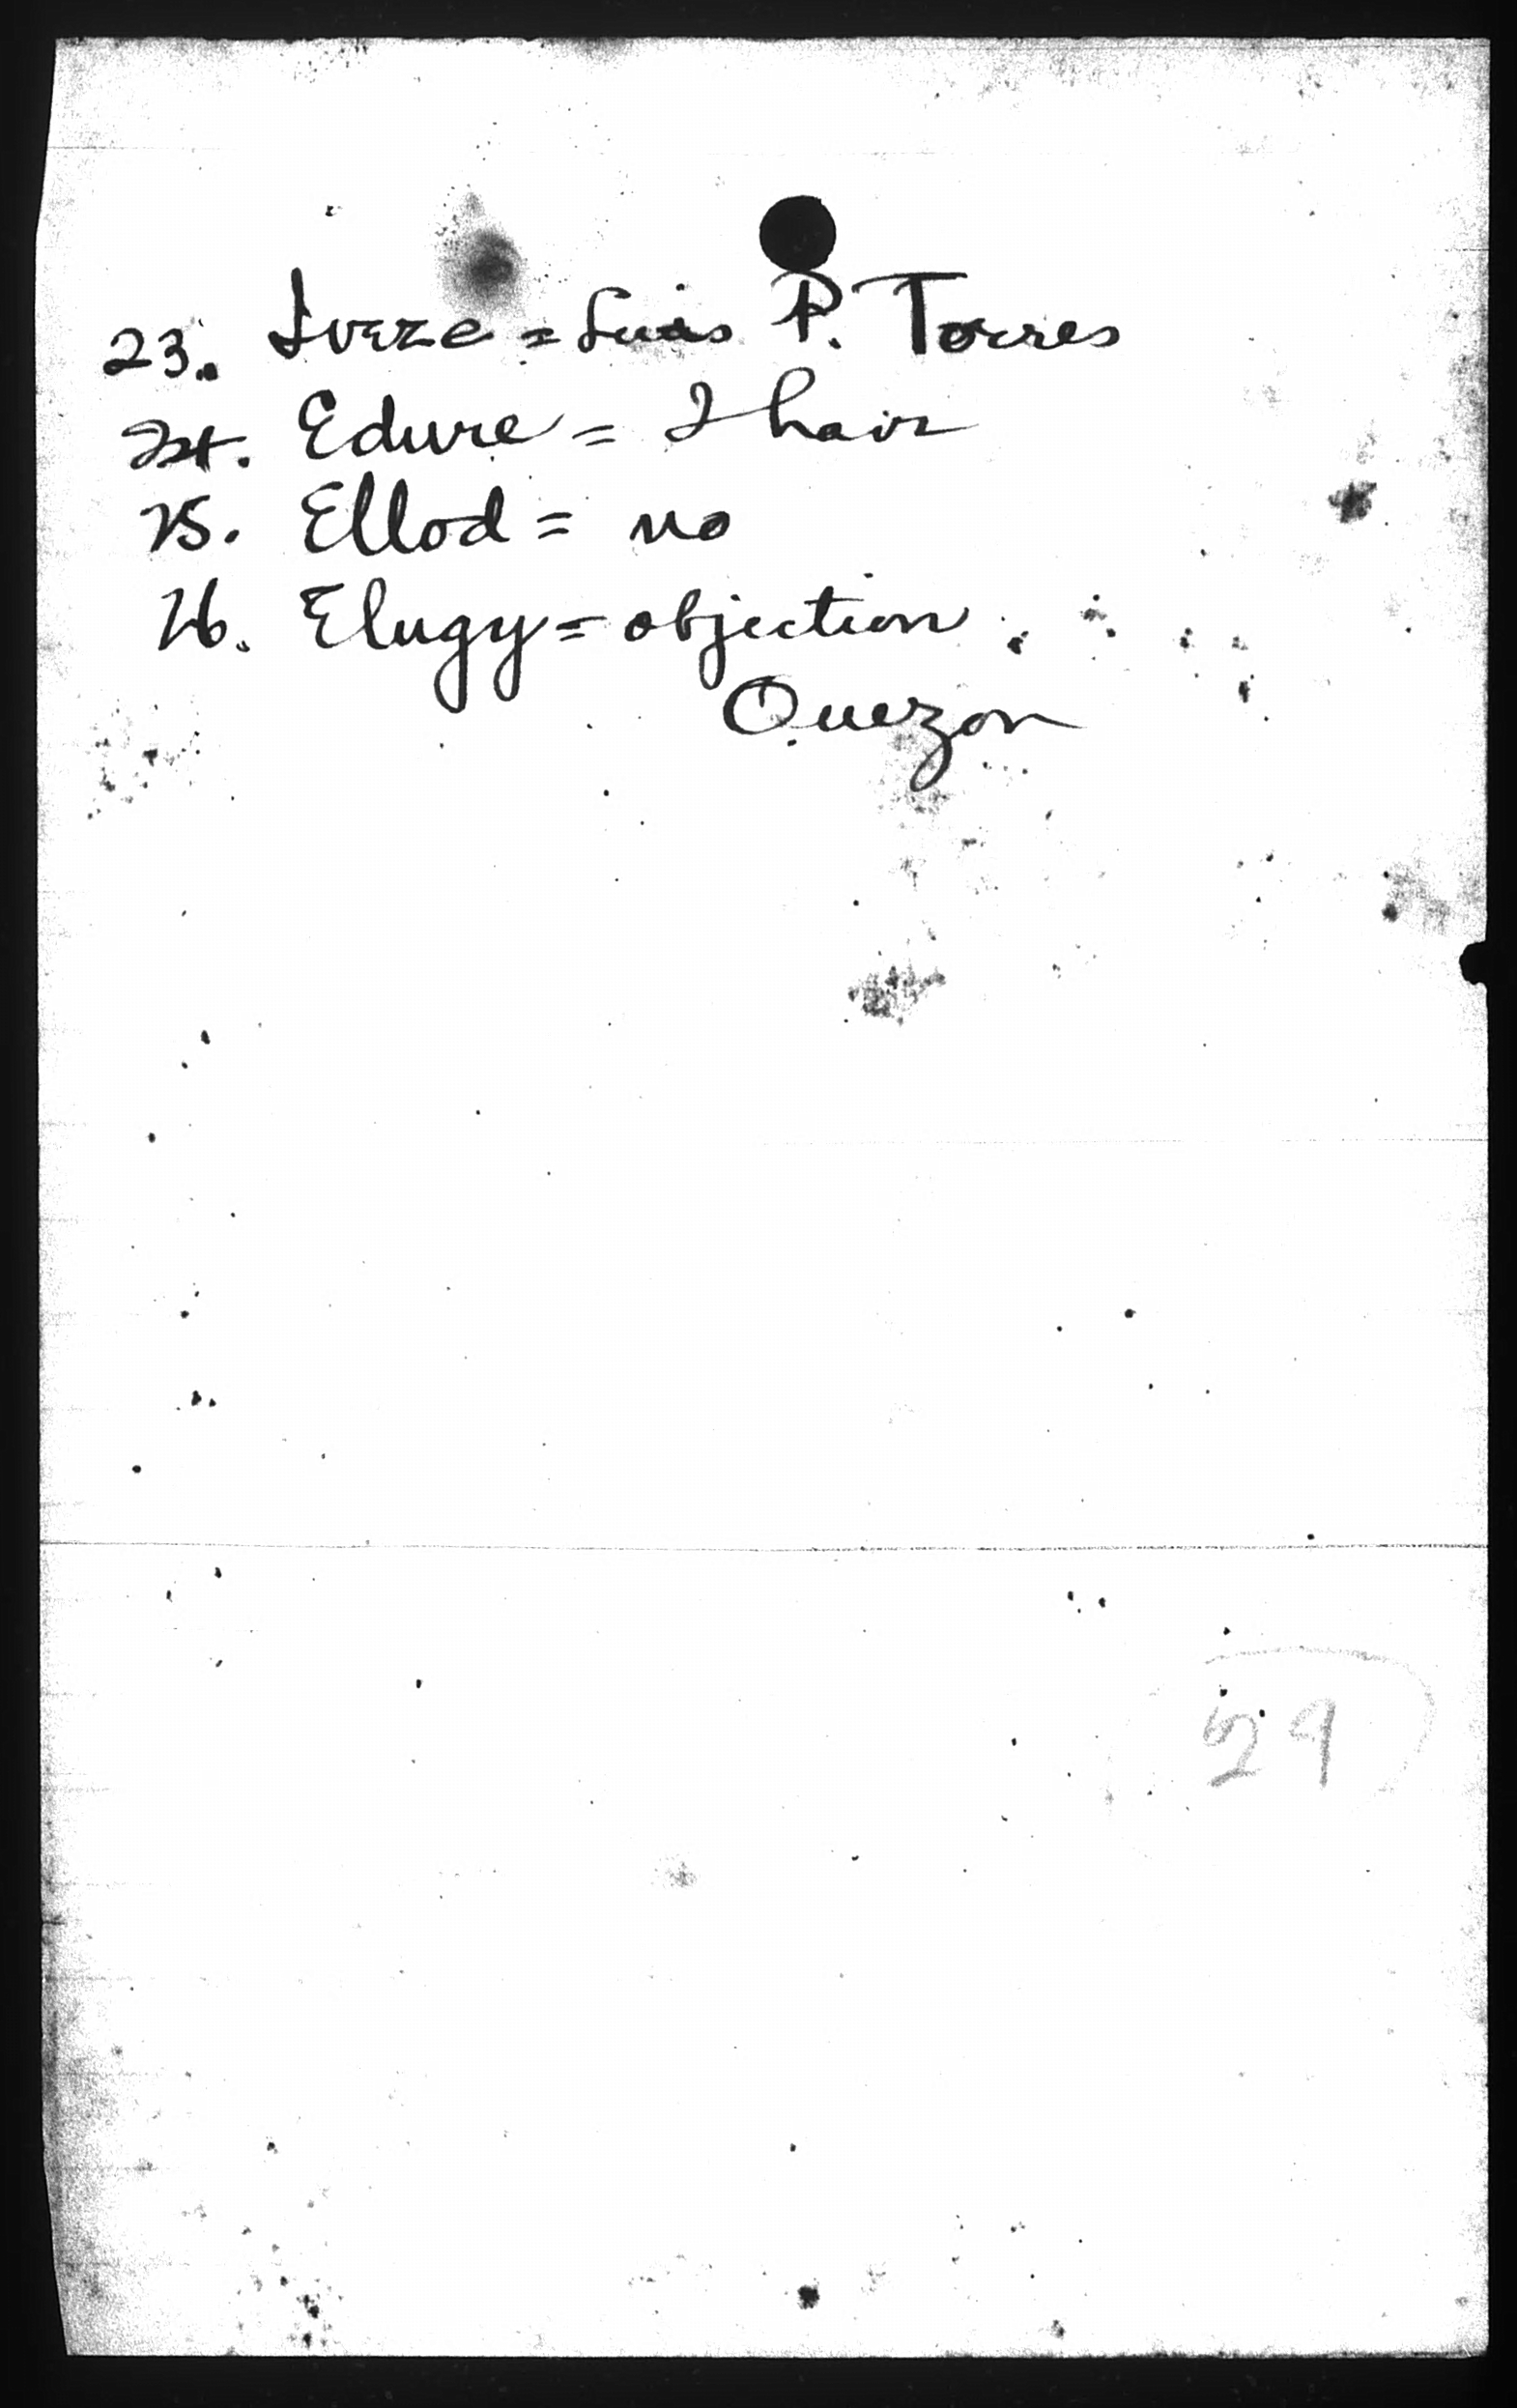 23. Iveze = Luis P. Torres
24. Edure = I have
25. Ellod = no
26. Elugy = objection.
Quezon
29